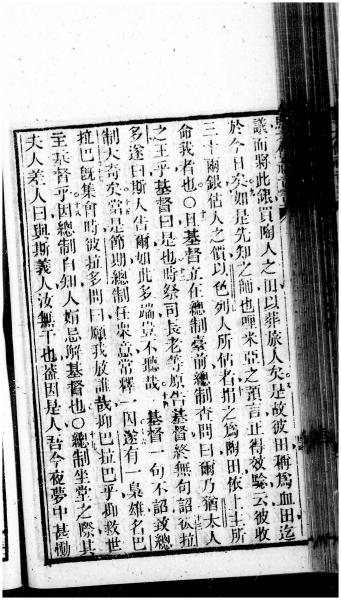 議而將此銀買陶人之田以葬旅人矣是故彼田稱爲血田迄
於今日矣如是先知之師也哩米亞之預言止得效驗云彼收
三十兩銀估人之價以色列人所估者捐之爲陶田依上主所
命我者也○且基督立在總制臺前總制杳問曰爾乃猶太人
之王乎基督曰是也時祭司長老等原告基督終無句詔彼拉
多遂曰斯人告爾如此多端豈不聽哉 基督一句不詔致總
制大奇矣當是節期總制任衆意常釋一囚遂有一梟雄名巴
拉巴旣集會時彼拉多問曰願我放誰哉抑巴拉巴乎抑救世
主基督乎因總制自知人媢忌解基督也○總制坐堂之際其
夫人差人曰與斯義人汝無干也葢因是人吾今夜夢中甚慟